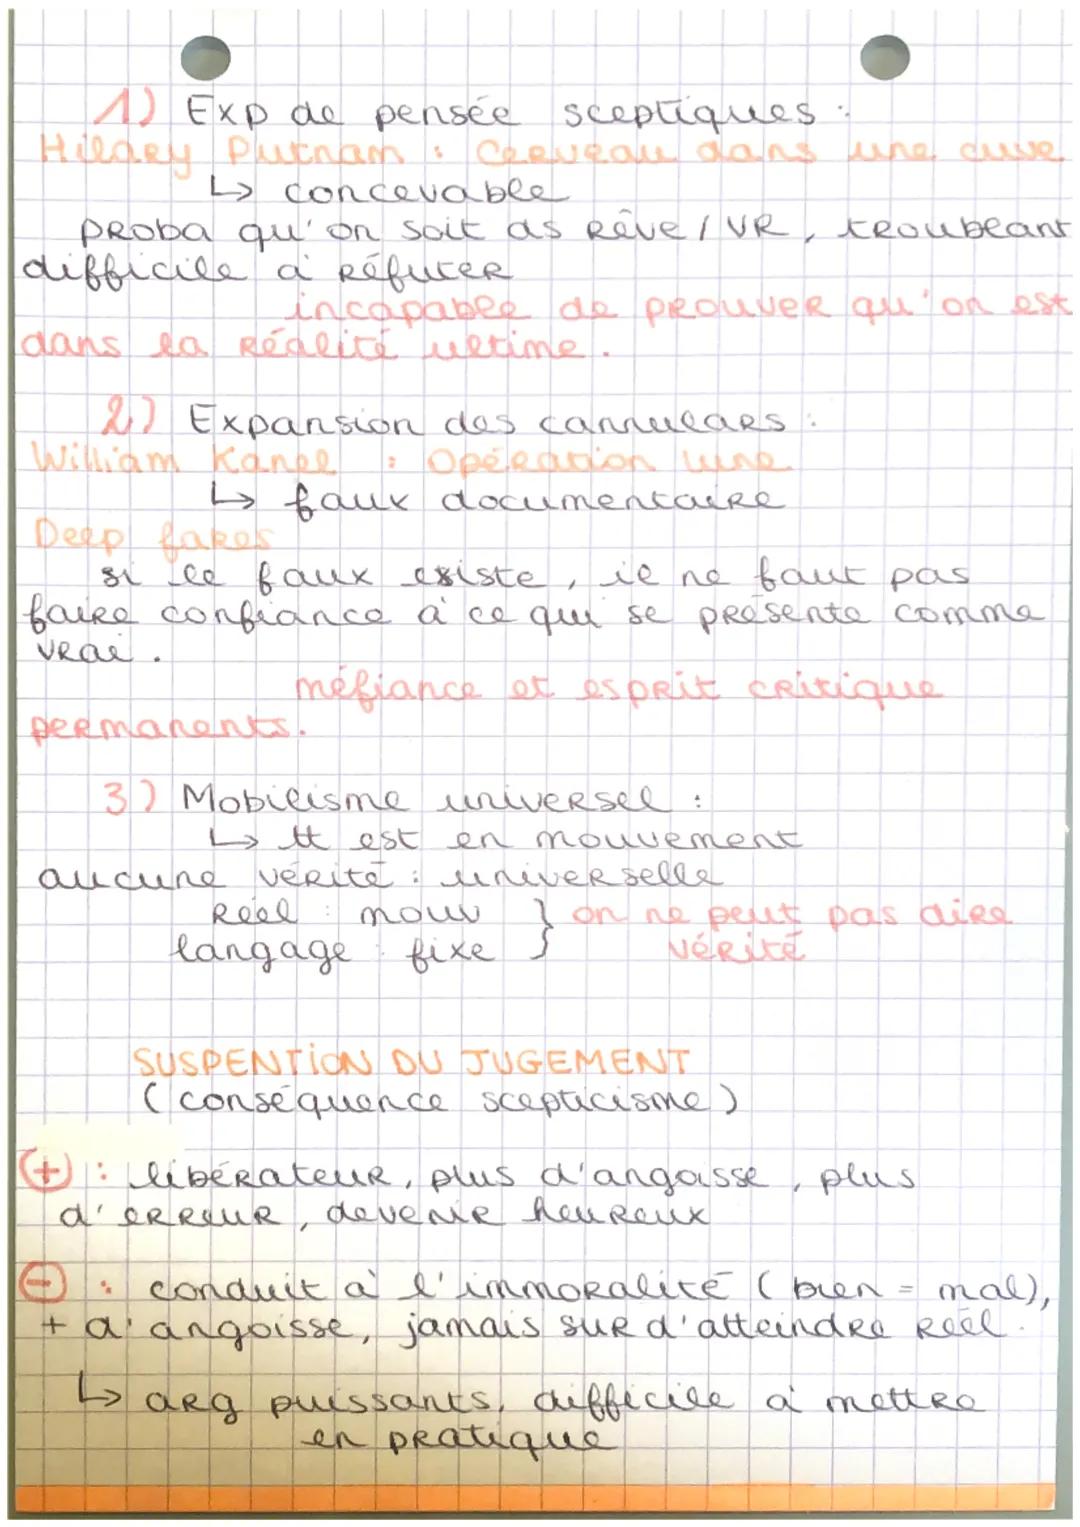 1) Exp de pensée sceptiques :
Hilary Putnam : Cerveau dans une cuve
↳ concevable
proba qu'on soit ds rêve / VR, troublant
difficile à réfuter
incapable de prouver qu'on est
dans la réalité ultime.
2) Expansion des cannulars :
William Karel : Opération lune
↳ faux documentaire
Deep fakes
si le faux existe, il ne faut pas
faire confiance à ce qui se présente comme
vrai.
méfiance et esprit critique
permanents.
3) Mobilisme universel :
↳ tt est en mouvement
aucune vérité : universelle
Réel : mouv } on ne peut pas dire
langage : fixe } vérité
SUSPENTION DU JUGEMENT
(conséquence scepticisme)
(+) : libérateur, plus d'angoisse, plus
d'erreur, devenir heureux
(-) : conduit à l'immoralité (bien = mal),
+ d'angoisse, jamais sur d'atteindre réel.
↳ arg puissants, difficile à mettre
en pratique